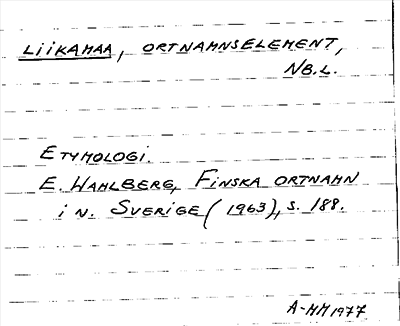 LIIKAMAA, ORTNAMNSELEMENT,
NB.L.
ETYMOLOGI.
E. WAHLBERG, FINSKA ORTNAMN
i N. SVERIGE (1963), S. 188.
A-MM 1977